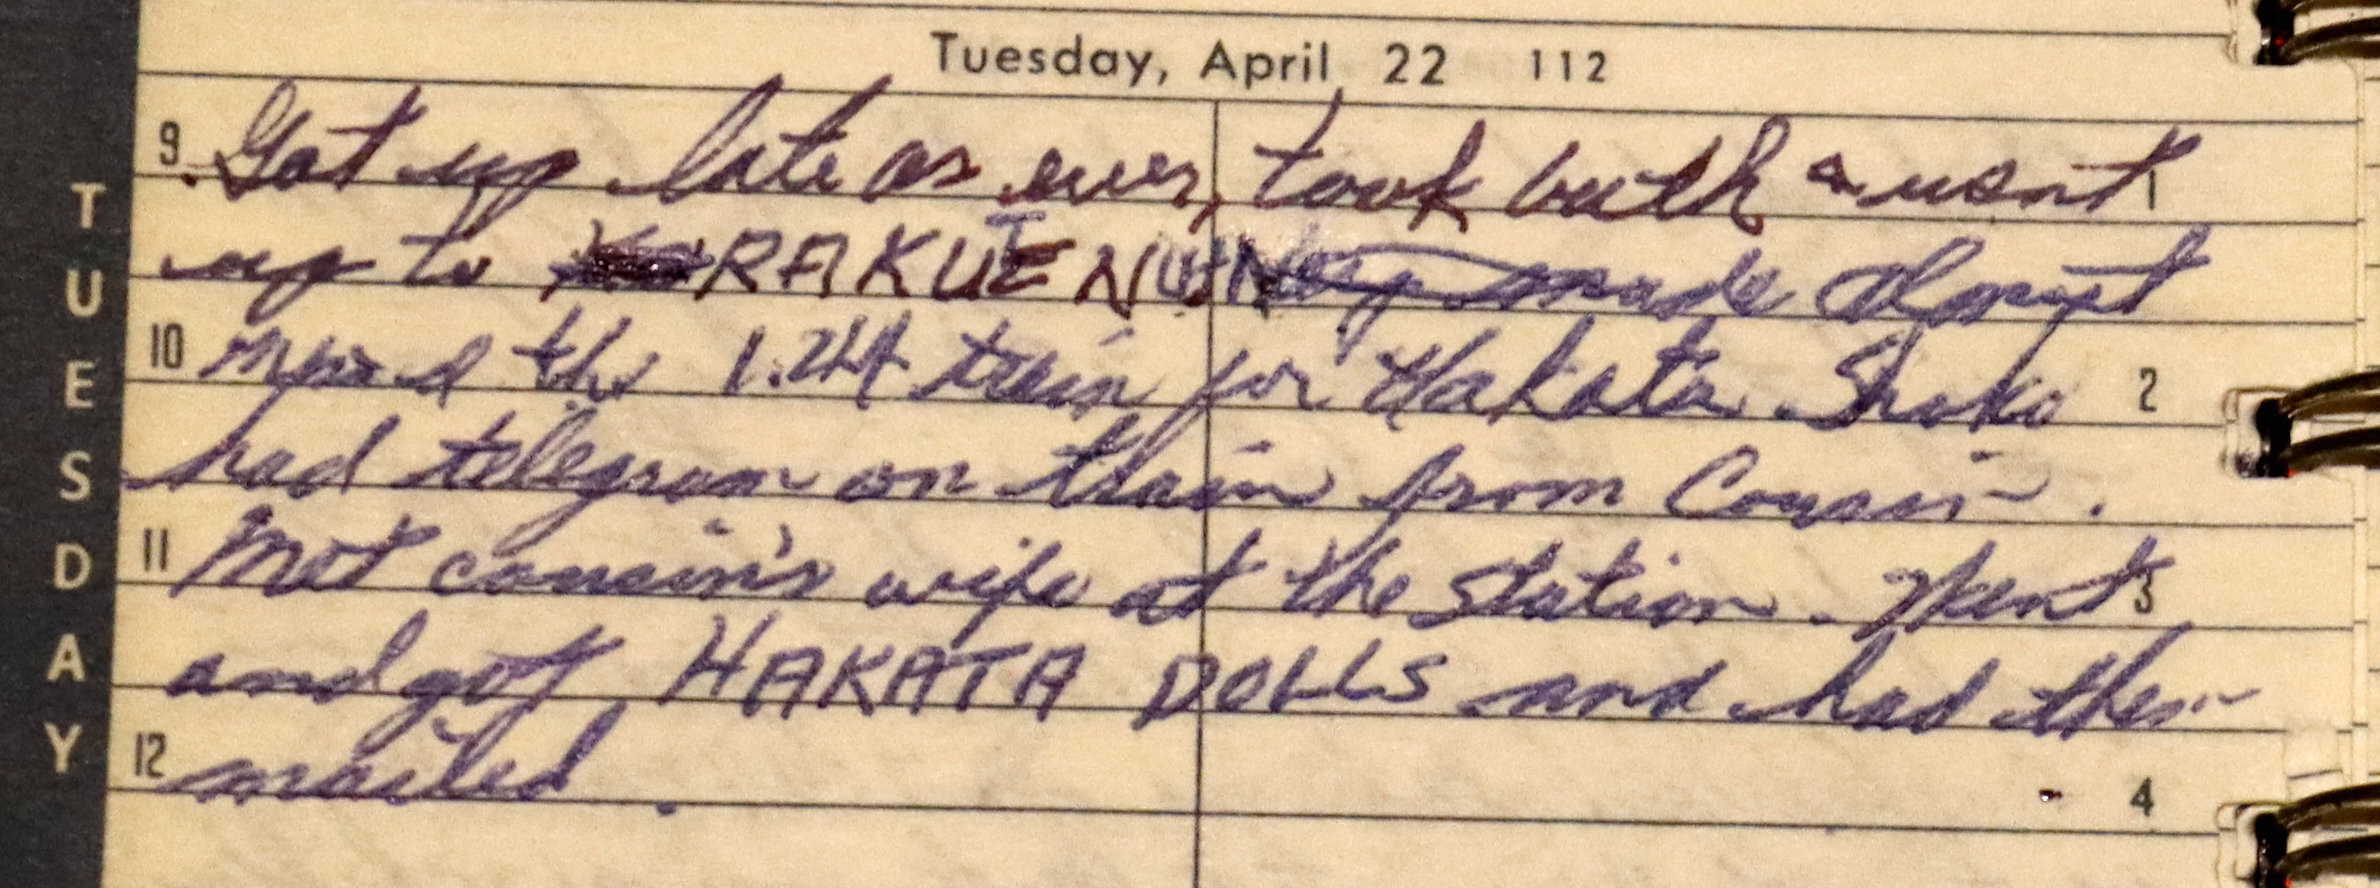 Tuesday, April 22 112
TUESDAY
9 Got up late as ever, took bath & went 1
up to RAKUTEN made
10 the 1.24 train for Hakata. 2
had telegram on train from Cousin.
11 Met cousin's wife at the station. Went 3
and got HAKATA DOLLS and had them
12 mailed. 4